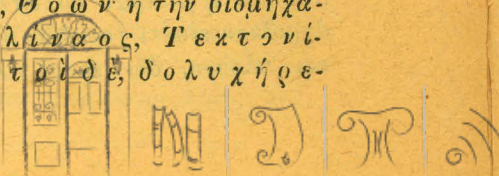 , Θοων ἢ τὴν βιομηχα-
λίναος, Τεκτονί-
τρὶδε, δολυχήρε-